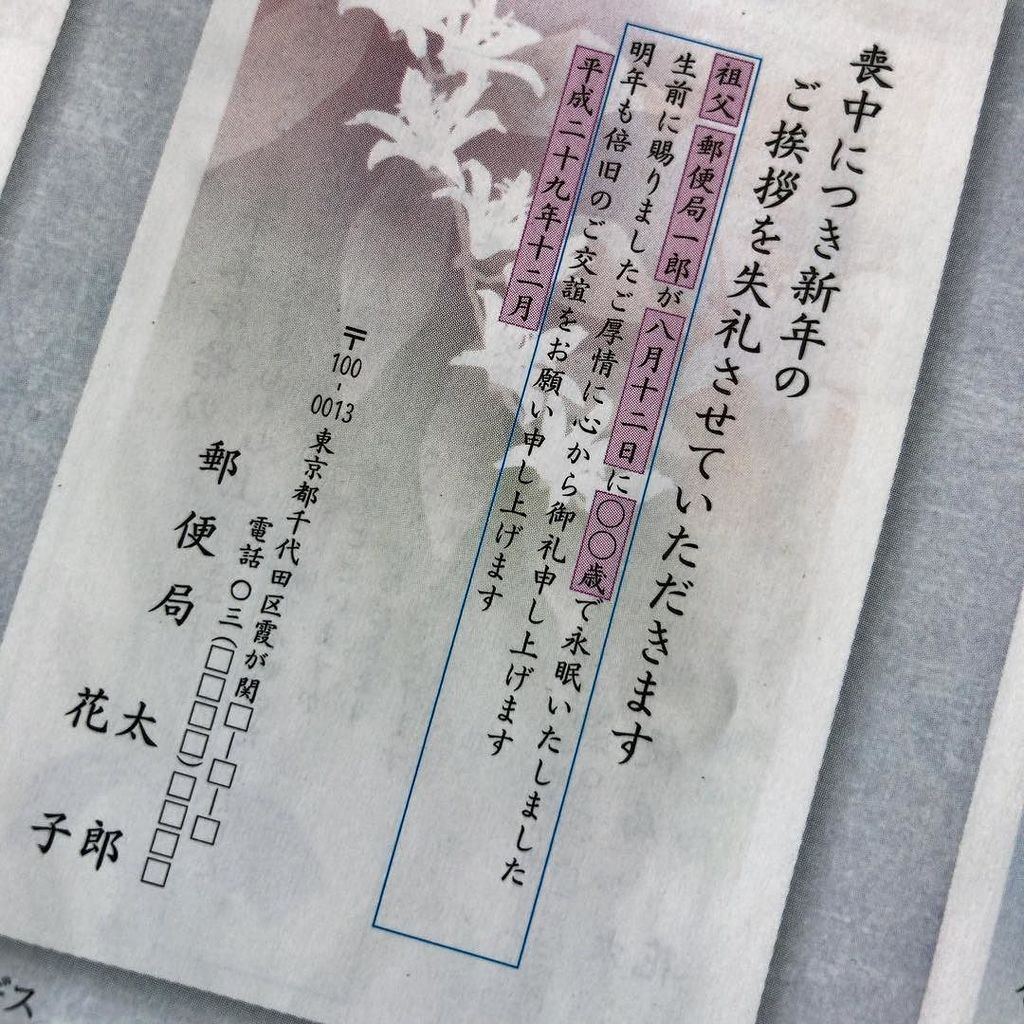 喪中につき新年の
ご挨拶を失礼させていただきます
祖父 郵便局一郎が八月十二日に〇〇歳で永眠いたしました
生前に賜りましたご厚情に心から御礼申し上げます
明年も倍旧のご交誼をお願い申し上げます
平成二十九年十二月
〒100-0013
東京都千代田区霞が関□-□-□
電話 〇三(□□□□)□□□□
郵便局 太郎
花子